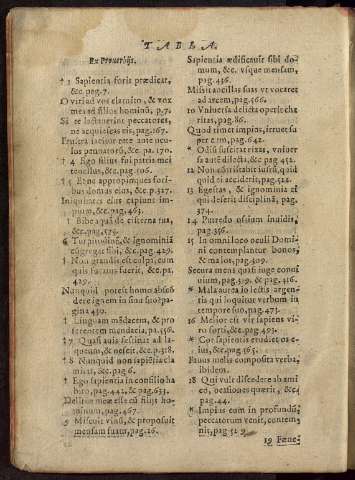 TABLA.
Ex Prouerbijs.
† 1 Sapientia foris prædicat,
&c. pag. 7.
O viri ad vos clamito, & vox
mea ad filios hominũ, p. 7.
Si te lactauerint peccatores,
ne acquiescas eis, pag. 167.
Frustra iacitur rete ante ocu-
los pennatorũ, &c. pa. 170.
† 4 Ego filius fui patris mei
tenellus, &c. pag. 106.
† 5 Et ne appropinques fori-
bus domus eius, &c. p. 327.
Iniquitates eius capiunt im-
pium, &c. pag. 463.
† Bibe aquã de cisterna tua,
&c. pag. 575.
6 Turpitudinẽ, & ignominiã
cõgregat sibi, &c. pag. 429.
† Non grandis est culpa, cum
quis furatus fuerit, &c. pa.
429.
Nunquid potest homo abscõ
dere ignem in sinu suo? pa-
gina 430.
† Linguam mẽdacem, & pro
ferentem mendacia, pa. 556.
† 7 Quasi auis festinat ad la-
queum, & nescit, &c. p. 318.
† 8 Nunquid non sapiẽtia cla
mitat, &c. pag. 6.
† Ego sapientia in consilio ha
bito, pag. 442, & 623.
Delitiæ meæ esse cũ filijs ho-
minum, pag. 467.
9 Miscuit vinũ, & proposuit
mensam suam, pag. 26.
Sapientia ædificauit sibi do-
mum, &c. vsque mensam,
pag. 436.
Misit ancillas suas vt vocaret
ad arcem, pag. 566.
10 Vniuersa delicta operit cha
ritas, pag. 86.
Quod timet impius, irruet su
per eum, pag. 642.
* Odiũ suscitat rixas, vniuer
sa autẽ dilecta, &c. pag 451.
12 Nõ cõtristabit iustũ, quid
quid ei acciderit, pag. 512.
13 Egestas, & ignominia ei
qui deserit disciplinã, pag.
374.
14 Putredo ossium inuidia,
pag. 356.
15 In omni loco oculi Domi-
ni contemplantur bonos,
& malos, pag. 309.
Secura mens quasi iuge conui
uium, pag. 319, & pag. 316.
* Mala aurea in lectis argen-
tis qui loquitur verbum in
tempore suo, pag. 473.
16 Melior est vir sapiens vi-
ro forti, &c. pag. 493.
* Cor sapientis erudiet os e-
ius, &c. pag. 565.
Fauus mellis composita verba,
ibidem.
18 Qui vult discedere ab ami
co, occasiones quærit, &c.
pag. 44.
* Impius cum in profundũ,
peccatorum venit, contem-
nit, pag.
19 Fœne-